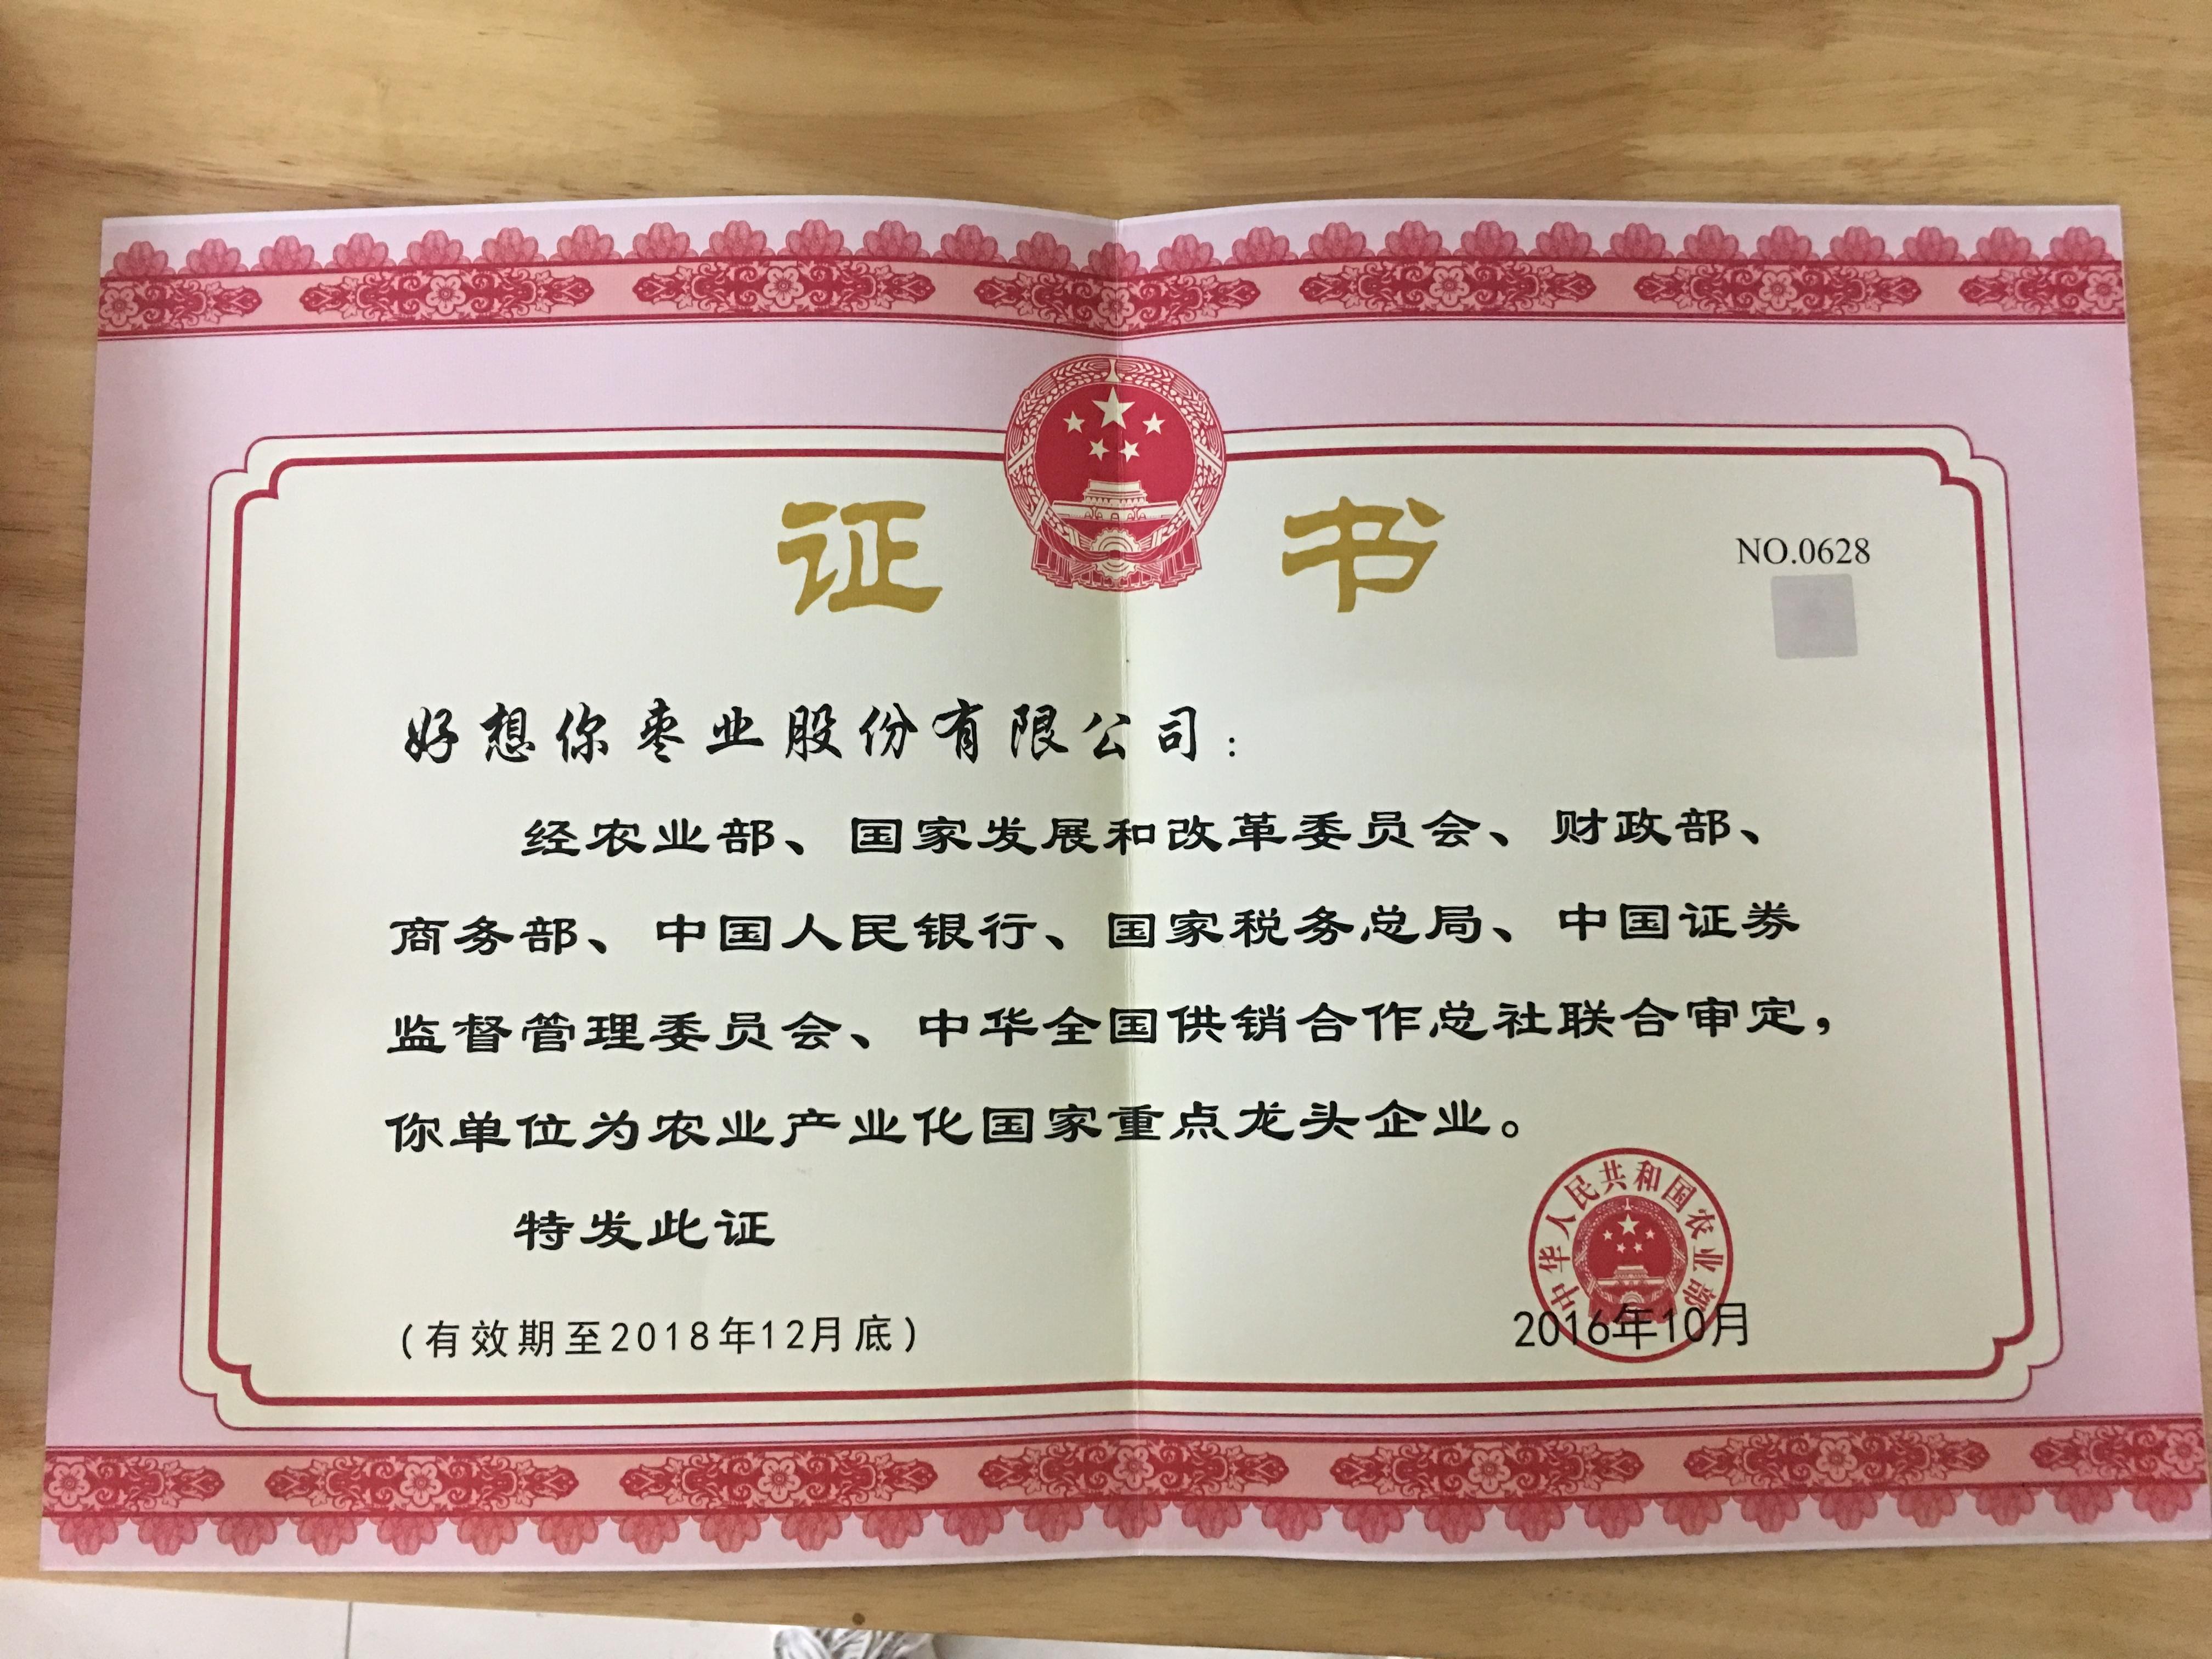 证书
NO.0628
好想你枣业股份有限公司：
经农业部、国家发展和改革委员会、财政部、
商务部、中国人民银行、国家税务总局、中国证券
监督管理委员会、中华全国供销合作总社联合审定，
你单位为农业产业化国家重点龙头企业。
特发此证
中华人民共和国农业部
(有效期至2018年12月底)
2016年10月